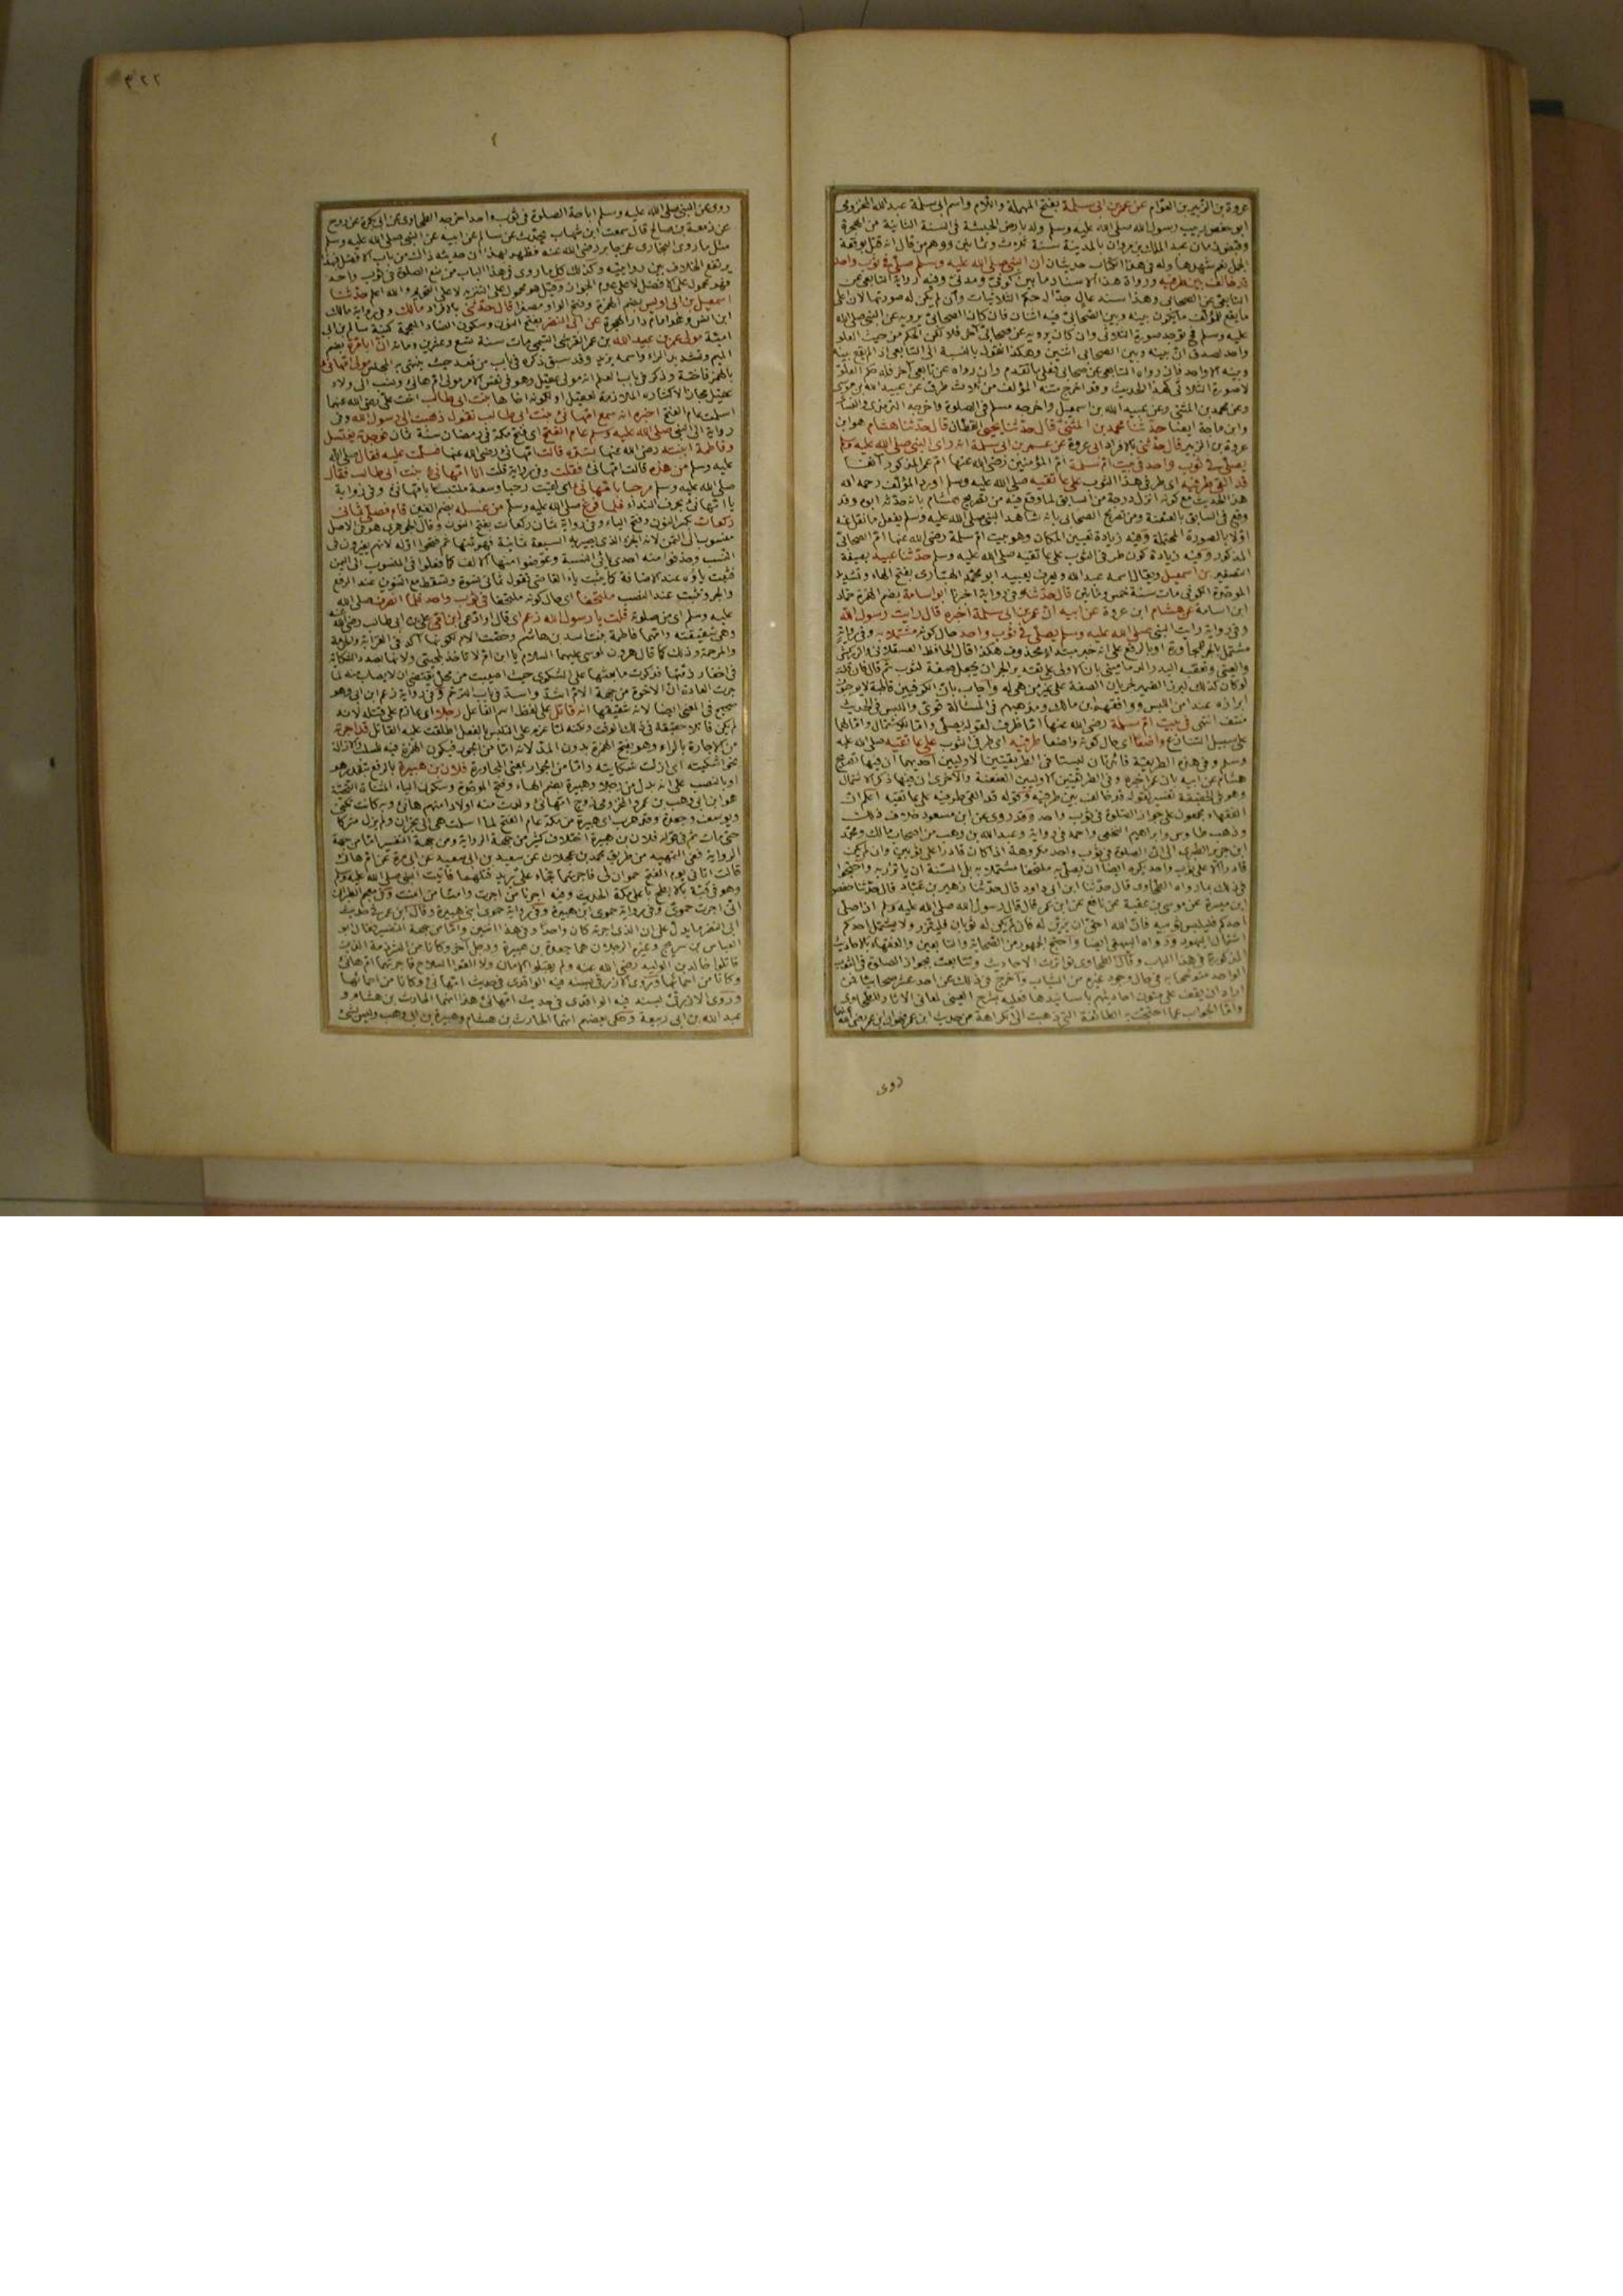 عروة بن الزبير بن العوام عن عمر بن ابى سلمة بفتح المهملة واللام واسم ابى سلمة عبد الله المخزومى
ابو حفص ربيب رسول الله صلى الله عليه وسلم ولد بارض الحبشة فى السنة الثانية من الهجرة
وقبض زمان عبد الملك بن مروان بالمدينة سنة ثلاث وثمانين ووهم من قال انه قتل بوقعة
الجمل نعم شهدها وله فى هذا الكتاب حديثان ان النبى صلى الله عليه وسلم صلى فى ثوب واحد
قد خالف بين طرفيه ورواة هذا الاسناد ما بين كوفى ومدنى وفيه رواية التابعى عن
التابعى عن الصحابى وهذا سند عال جدا له حكم الثلاثيات وان لم يكن له صورتها لان اعلى
ما يقع للمؤلف ما يكون بينه وبين الصحابى فيه اثنان فان كان الصحابى يرويه عن النبى صلى الله
عليه وسلم فح توجد صورة الثلاثى وان كان يرويه عن صحابى آخر فلا لكن الحكم من حيث العلو
واحد لصدق ان بينه وبين الصحابى اثنين وهكذا نقول بالنسبة الى التابعى اذ لم يقع بينه
وبينه الا واحد فان رواه التابعى عن صحابى فعلى ما تقدم وان رواه عن تابعى آخر فله حكم العلو
لا صورة الثلاثى كهذا الحديث وقد اخرج متنه المؤلف من ثلاث طرق عن عبيد الله بن موسى
وعن محمد بن المثنى وعن عبيد الله بن اسمعيل واخرجه مسلم فى الصلوة واخرجه الترمذى والنسائى
وابن ماجة ايضا حدثنا محمد بن المثنى قال حدثنا يحيى القطان قال حدثنا هشام هو ابن
عروة بن الزبير قال حدثنى بالافراد ابى عروة عن عمر بن ابى سلمة انه راى النبى صلى الله عليه وسلم
يصلى فى ثوب واحد فى بيت ام سلمة ام المؤمنين رضى الله عنها ام عمر المذكور آنفا
قد القى طرفيه اى طرفى هذا الثوب على عاتقيه صلى الله عليه وسلم اورد المؤلف رحمه الله
هذا الحديث مع كونه انزل درجة من السابق لما وقع فيه من تصريح هشام بانه حدثه ابوه وقد
وقع فى السابق بالعنعنة ومن تصريح الصحابى بانه شاهد النبى صلى الله عليه وسلم يفعل ما نقل عنه
اولا بالصورة المحتملة وفيه زيادة تعيين المكان وهو بيت ام سلمة رضى الله عنها ام الصحابى
المذكور وفيه زيادة كون طرفى الثوب على عاتقيه صلى الله عليه وسلم حدثنا عبيد بصيغة
التصغير بن اسمعيل ويقال اسمه عبد الله ويعرف بعبيد ابو محمد الهبارى بفتح الهاء وتشديد
الموحدة الكوفى مات سنة خمسين قال حدثنا وفى رواية اخبرنا ابو اسامة بضم الهمزة حماد
ابن اسامة عن هشام ابن عروة عن ابيه ان عمر بن ابى سلمة اخبره قال رايت رسول الله
وفى رواية رايت النبى صلى الله عليه وسلم يصلى فى ثوب واحد حال كونه مشتملا به وفى رواية
مشتمل بالجر للمجاورة او بالرفع على انه خبر مبتدأ محذوف هكذا قال الحافظ العسقلانى والزركشى
والعينى وتعقبه البدر الدمامينى بان الاولى على تقديره الجران يجعل صفة لثوب ثم قال فان قلت
لو كان كذلك لبرز الضمير لجريان الصفة على غير من هى له واجاب بان الكوفيين قاطبة لا يوجبون
ابرازه عند امن اللبس ووافقهم ابن مالك ومذهبهم فى المسألة قوى واللبس فى الحديث
منتف انتهى فى بيت ام سلمة رضى الله عنها اما ظرف لقوله يصلى واما للاشتمال واما لهما
على سبيل التنازع واضعا اى حال كونه واضعا طرفيه اى طرفى الثوب على عاتقيه صلى الله عليه
وسلم وفى هذه الطريقة فائدتان ليستا فى الطريقتين الاوليين احديهما ان فيها تصريح
هشام عن ابيه بان عمر اخبره وفى الطريقتين الاوليين العنعنة والاخرى ان فيها ذكر الاشتمال
وهو فى الحقيقة تفسير لقوله قد خالف بين طرفيه وكقوله قد القى طرفيه على عاتقيه اعلم ان
الفقهاء مجمعون على جواز الصلوة فى ثوب واحد وقد روى عن ابن مسعود خلاف ذلك
وذهب طاوس وابراهيم النخعى واحمد فى رواية وعبد الله بن وهب من اصحاب مالك ومحمد
ابن جرير الطبرى الى ان الصلوة فى ثوب واحد مكروهة اذا كان قادرا على ثوبين وان لم يكن
قادرا الا على ثوب واحد يكره ايضا ان يصلى به ملتحفا مشتملا به بل السنة ان يأتزر به واحتجوا
فى ذلك بما رواه الطحاوى قال حدثنا ابن ابى داود قال حدثنا زهير بن عباد قال حدثنا حفص
ابن ميسرة عن موسى بن عقبة عن نافع عن ابن عمر قال قال رسول الله صلى الله عليه وسلم اذا صلى
احدكم فليلبس ثوبيه فان الله احق ان يزين له فان لم يكن له ثوبان فليتزر ولا يشتمل احدكم
اشتمال اليهود ورواه البيهقى ايضا واحتج الجمهور من الصحابة والتابعين والفقهاء بالاحاديث
المذكورة فى هذا الباب وقال الطحاوى تواترت الاحاديث وتتابعت بجواز الصلوة فى الثوب
الواحد متوشحا به فى حال وجود غيره من الثياب واخرج فى ذلك عن احد عشر صحابيا فمن
اراد ان يقف على متون احاديثهم باسانيدها فعليه بشرح العينى لمعانى الاثار للطحاوى
واما الجواب عما احتجت به الطائفة التى ذهبت الى كراهة من حديث ابن عمر فهو ان ابن عمر
روى
٣٢٢
روى عن النبى صلى الله عليه وسلم اباحة الصلوة فى ثوب واحد اخرجه الطحاوى عن ابى بكرة عن روح
عن زمعة بن صالح قال سمعت ابن شهاب يحدث عن سالم عن ابيه عن النبى صلى الله عليه وسلم
مثل ما روى البخارى عن جابر رضى الله عنه فظهر بهذا ان حديثه ذاك من باب الافضل فبهذا
يرتفع الخلاف بين روايتيه وكذلك كل ما روى فى هذا الباب من منع الصلوة فى ثوب واحد
فهو محمول على الافضل لا على عدم الجواز وقيل هو محمول على التنزيه لا على التحريم والله اعلم حدثنا
اسمعيل بن ابى اويس بضم الهمزة وفتح الواو مصغرا قال حدثنى بالافراد مالك وفى رواية مالك
ابن انس وهو امام دار الهجرة عن ابى النضر بفتح النون وسكون الضاد المعجمة كنية سالم بن ابى
امية مولى عمر بن عبيد الله بن عمر القرشى التيمى مات سنة تسع وعشرين ومائة ان ابا مرة بضم
الميم وتشديد الراء واسمه يزيد وقد سبق ذكره فى باب من قعد حيث ينتهى به المجلس مولى ام هانئ
بالهمز فاختة وذكر فى باب العلم انه مولى عقيل وهو فى نفس الامر مولى ام هانئ ونسب الى ولاء
عقيل مجازا لاكثاره الملازمة لعقيل او لكونه اخاها بنت ابى طالب اخت على رضى الله عنهما
اسلمت عام الفتح اخبره انه سمع ام هانئ بنت ابى طالب تقول ذهبت الى رسول الله وفى
رواية الى النبى صلى الله عليه وسلم عام الفتح اى فتح مكة فى رمضان سنة ثمان فوجدته يغتسل
وفاطمة ابنته رضى الله عنها تستره قالت ام هانئ رضى الله عنها فسلمت عليه فقال صلى الله
عليه وسلم من هذه قالت ام هانئ فقلت وفى رواية قلت انا ام هانئ بنت ابى طالب فقال
صلى الله عليه وسلم مرحبا بام هانئ اى لقيت رحبا وسعة ملتبسا بام هانئ وفى رواية
يا ام هانئ بحرف النداء فلما فرغ صلى الله عليه وسلم من غسله بضم الغين قام فصلى ثمانى
ركعات بكسر النون وفتح الياء وفى رواية ثمان ركعات بفتح النون وقال الجوهرى هو فى الاصل
منسوب الى الثمن لانه الجزء الذى صير به السبعة ثمانية فهو ثمنها ثم فتحوا اوله لانهم يغيرون فى
النسب وحذفوا منه احدى يائى النسبة وعوضوا منها الالف كما فعلوا فى المنسوب الى اليمن
فثبتت ياؤه عند الاضافة كما ثبت ياء القاضى تقول ثمانى نسوة وتسقط مع التنوين عند الرفع
والجر وتثبت عند النصب ملتحفا اى حال كونه ملتحفا فى ثوب واحد فلما انصرف صلى الله
عليه وسلم اى من صلوته قلت يا رسول الله زعم اى قال او ادعى ابن امى على بن ابى طالب رضى الله عنه
وهى شقيقته وامهما فاطمة بنت اسد بن هاشم وخصت الام لكونها آكد فى القرابة
والمرحمة وذلك كما قال هرون لموسى عليهما السلام يا ابن ام لا تأخذ بلحيتى ولانها بصدد الشكاية
فى اخفار ذمتها فذكرت ما بعثها على الشكوى حيث اصيبت من محل يقتضى ان لا يصاب منه لما
جرت العادة ان الاخوة من جهة الام اشد وفى رواية زعم ابن ابى وهو
صحيح فى المعنى ايضا لانه شقيقها انه قاتل على لفظ اسم الفاعل رجلا اى عازم على قتله لانه
لم يكن قاتلا حقيقة فى ذلك الوقت ولكنه لما عزم على التلبس بالفعل اطلقت عليه القاتل قد اجرته
من الاجارة بالراء وهو بفتح الهمزة بدون المد لانه اما من الجور فيكون الهمزة فيه للسلب والازالة
نحو اشكيته اى ازلت شكايته واما من الجوار بمعنى المجاورة فلان بن هبيرة بالرفع بتقدير هو
او بالنصب على انه بدل من رجلا وهبيرة بضم الهاء وفتح الموحدة وسكون الياء المثناة التحتية
هو ابن ابى وهب بن عمرو المخزومى زوج ام هانئ ولدت منه اولادا منهم هانئ وبه كانت تكنى
ويوسف وجعدة وقد هرب اى هبيرة من مكة عام الفتح لما اسلمت هى الى نجران ولم يزل مشركا
حتى مات ثم فى قوله فلان بن هبيرة اختلاف كثير من جهة الرواية ومن جهة التفسير اما من جهة
الرواية ففى التمهيد من طريق محمد بن عجلان عن سعيد بن ابى سعيد عن ابى مرة عن ام هانئ
قالت اتانى يوم الفتح حموان لى فاجرتهما فجاء على يريد قتلهما فاتيت النبى صلى الله عليه وسلم
وهو فى قبة بالابطح باعلى مكة الحديث وفيه اجرنا من اجرت وامنا من امنت وفى معجم الطبرانى
انى اجرت حموى وفى رواية حموى ابن هبيرة وفى رواية حموى ابنى هبيرة وقال ابن عمر فى حديث
ابى النضر ما يدل على ان الذى اجرته كان واحدا وفى هذا اثنين واما من جهة التفسير فقال ابو
العباس بن سريج وغيره الرجلان هما جعدة بن هبيرة ورجل آخر وكانا من الشرذمة الذين
قاتلوا خالد بن الوليد رضى الله عنه ولم يقبلوا الامان ولا القوا السلاح فاجرتهما ام هانئ
وكانا من احمائها وروى الازرقى بسنده فيه الواقدى فى حديث ام هانئ وكانا من احمائها
وروى الازرقى بسند فيه الواقدى فى حديث ام هانئ هذا انهما الحارث بن هشام و
عبد الله بن ابى ربيعة وحكى بعضهم انهما الحارث بن هشام وهبيرة بن ابى وهب وليس بشئ